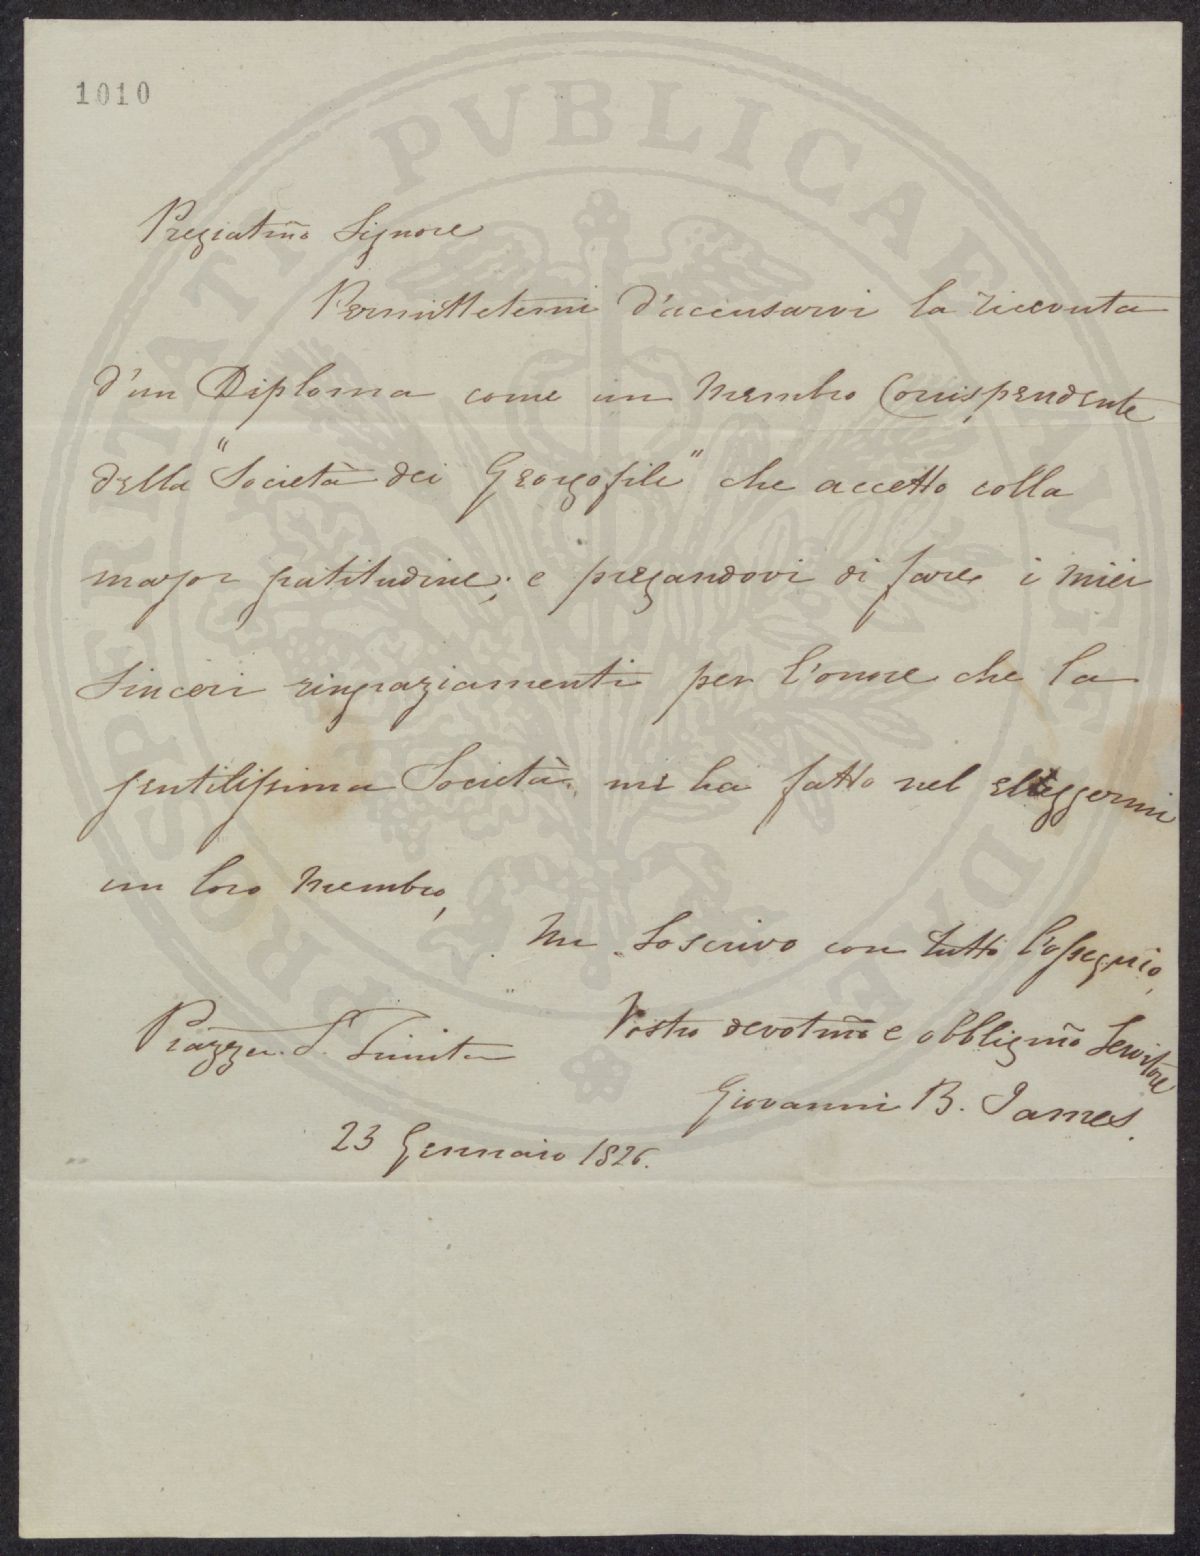 1010
PROSPERITATI PVBLICAE AVGENDAE
Pregiatmo Signore
Permittetemi d'accusarvi la ricevuta
d'un Diploma come un Membro Corrispendente
della "Società dei Georgofili" che accetto colla
major gratitudine; e pregandovi di fare i miei
sinceri ringraziamenti per l'onore che la
gentilissima Società mi ha fatto nel eleggermi
un loro Membro,
Mi Soscrivo con tutto l'ossequio,
Vostro devotmo e obbligmo Servitore
Piazza S. Trinita
Giovanni B. James.
23 Gennaio 1826.